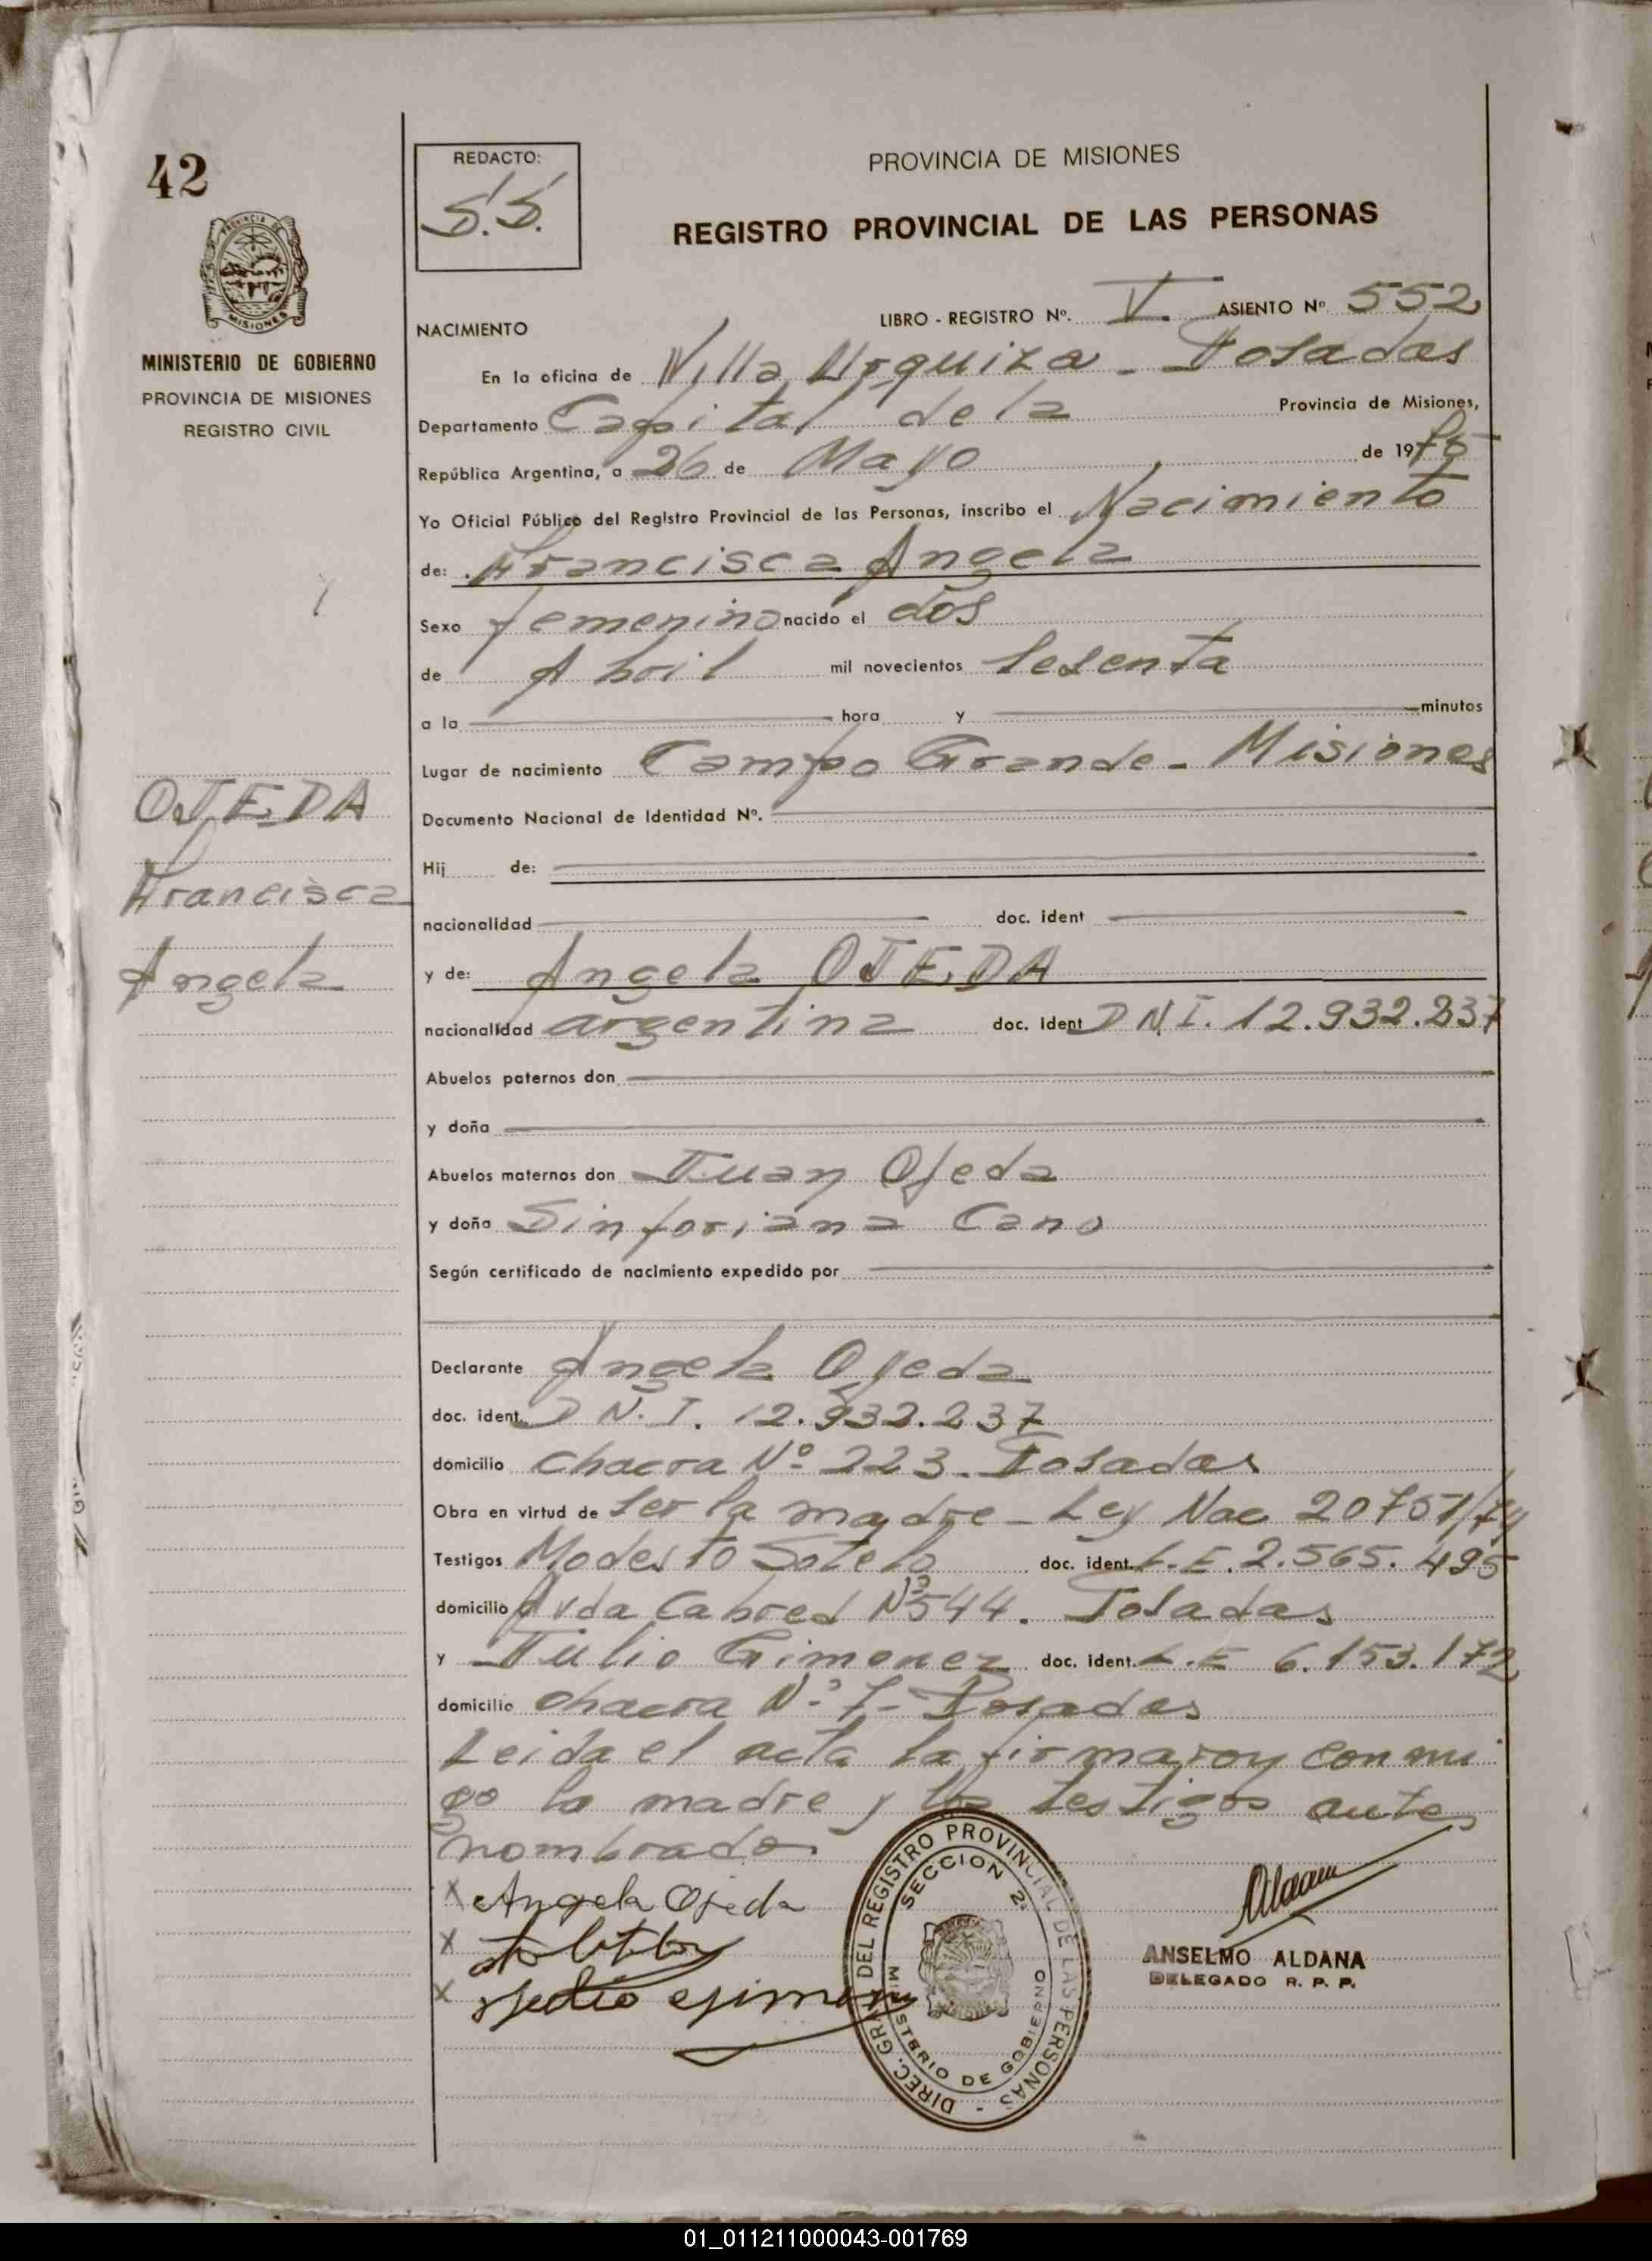 42
REDACTO:
S.S.
PROVINCIA DE MISIONES
REGISTRO PROVINCIAL DE LAS PERSONAS
MISIONES
MINISTERIO DE GOBIERNO
PROVINCIA DE MISIONES
REGISTRO CIVIL
OJEDA
Francisca
Angela
NACIMIENTO
LIBRO - REGISTRO Nº. V. ASIENTO Nº 552
En la oficina de Villa Urquiza - Posadas
Departamento Capital de la Provincia de Misiones,
República Argentina, a 26 de Mayo de 19
Yo Oficial Público del Registro Provincial de las Personas, inscribo el Nacimiento
de: Francisca Angela
Sexo femenino nacido el dos
de Abril mil novecientos sesenta
a la hora y minutos
Lugar de nacimiento Campo Grande - Misiones
Documento Nacional de Identidad Nº.
Hij de:
nacionalidad doc. ident
y de: Angela OJEDA
nacionalidad argentina doc. ident D N.I. 12.932.237
Abuelos paternos don
y doña
Abuelos maternos don Juan Ojeda
y doña Sinforiana Cano
Según certificado de nacimiento expedido por
Declarante Angela Ojeda
doc. ident. D N.I. 12.932.237
domicilio chacra Nº 223. Posadas
Obra en virtud de ser la madre - Ley Nac 20751/74
Testigos Modesto Sotelo doc. ident. L.E. 2.565.495
domicilio Avda Cabred Nº544. Posadas
y Julio Gimenez doc. ident. L.E 6.153.172
domicilio chacra Nº 7- Posadas
Leida el acta la firmaron conmi
go la madre y los testigos antes
nombrados
x Angela Ojeda
x
x Julio Gimenez
DIREC. GRAL. DEL REGISTRO PROVINCIAL DE LAS PERSONAS -
SECCION 2ª
MINISTERIO DE GOBIERNO
ANSELMO ALDANA
DELEGADO R. P. P.
01_011211000043-001769